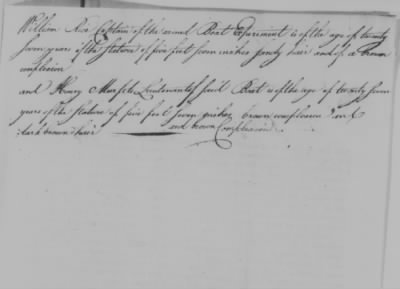 William Rice Captain of the armed Boat Experiment is of the age of twenty
seven years of the stature of five feet seven inches sandy hair and of a brown
complexion
and Henry Lieutenant of said Boat is of the age of twenty seven
years of the stature of five feet seven inches brown complexion and
dark brown hair and brown Complexion